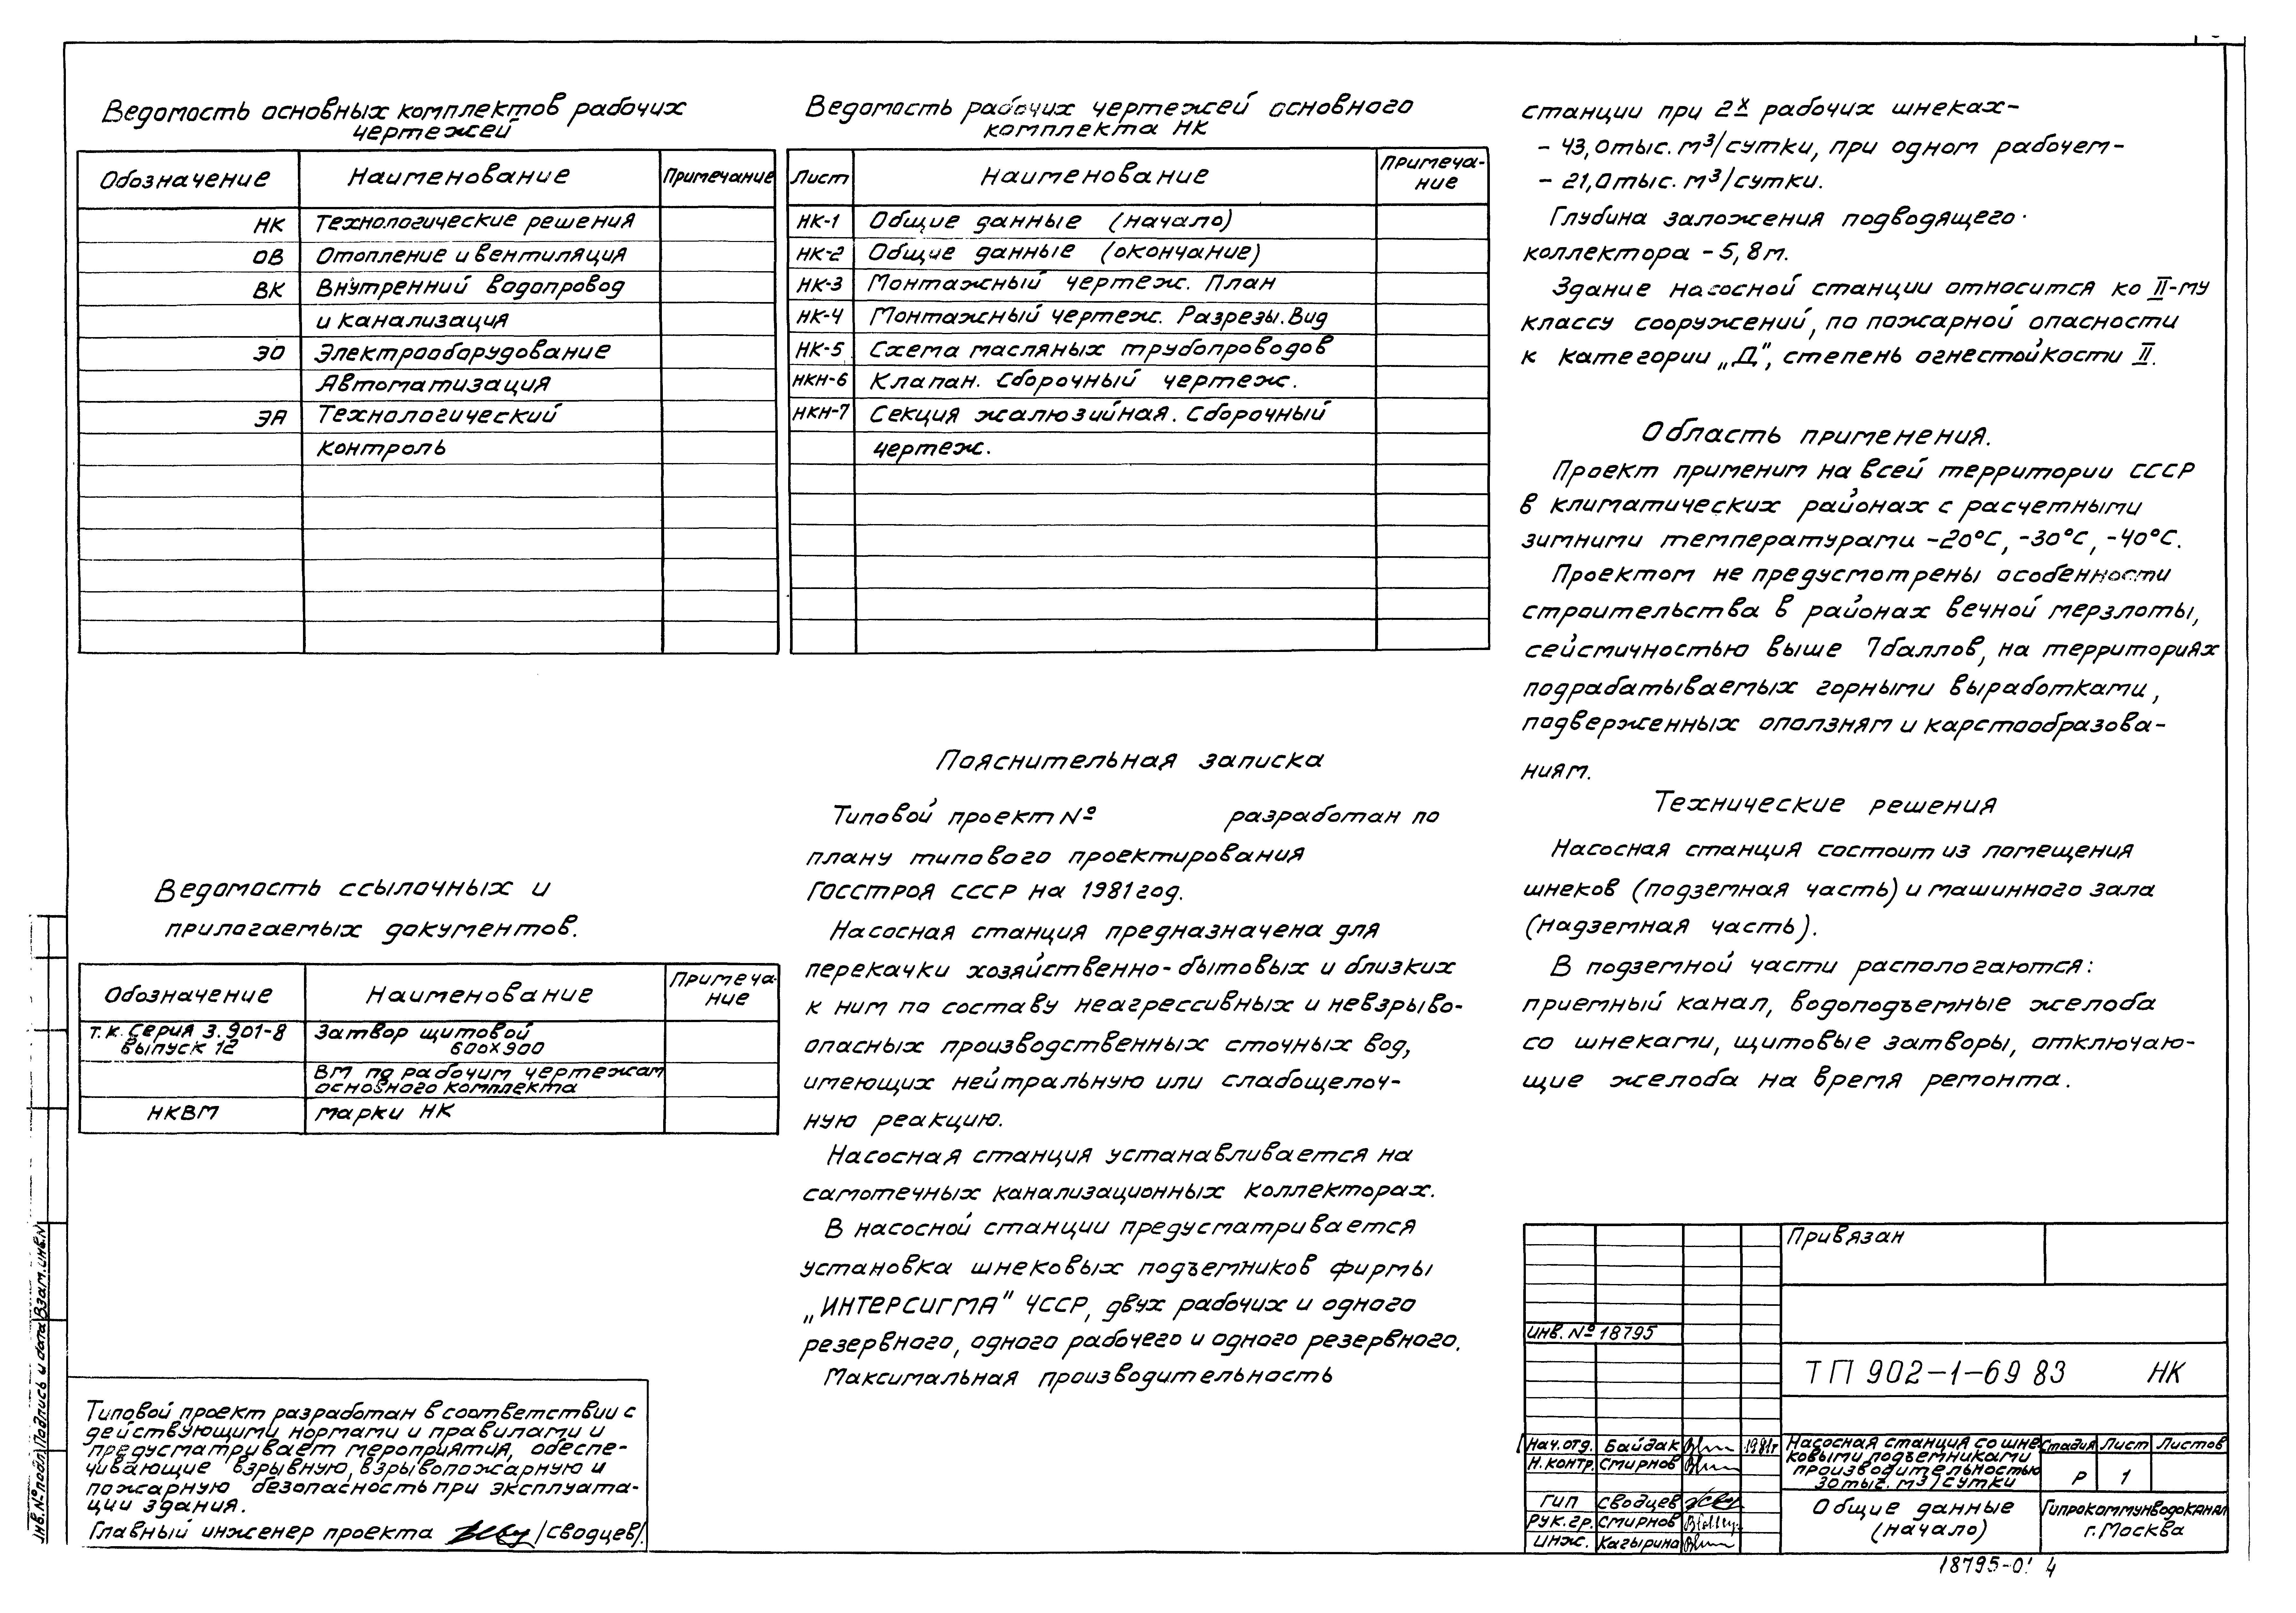 Ведомость основных комплектов рабочих
чертежей
Обозначение Наименование Примечание
НК Технологические решения
ОВ Отопление и вентиляция
ВК Внутренний водопровод
и канализация
ЭО Электрооборудование
Автоматизация
ЭА Технологический
контроль
Ведомость ссылочных и
прилагаемых документов.
Обозначение Наименование Примеча-
ние
т.к. Серия 3.901-8 Затвор щитовой
выпуск 12 600х900
ВМ по рабочим чертежам
основного комплекта
НКВМ марки НК
Типовой проект разработан в соответствии с
действующими нормами и правилами и
предусматривает мероприятия, обеспе-
чивающие взрывную, взрывопожарную и
пожарную безопасность при эксплуата-
ции здания.
Главный инженер проекта /Сводцев/.
Ведомость рабочих чертежей основного
комплекта НК
Лист Наименование Примеча-
ние
НК-1 Общие данные (начало)
НК-2 Общие данные (окончание)
НК-3 Монтажный чертеж. План
НК-4 Монтажный чертеж. Разрезы. Вид
НК-5 Схема масляных трубопроводов
НКН-6 Клапан. Сборочный чертеж.
НКН-7 Секция жалюзийная. Сборочный
чертеж.
Пояснительная записка
Типовой проект № разработан по
плану типового проектирования
Госстроя СССР на 1981 год.
Насосная станция предназначена для
перекачки хозяйственно-бытовых и близких
к ним по составу неагрессивных и невзрыво-
опасных производственных сточных вод,
имеющих нейтральную или слабощелоч-
ную реакцию.
Насосная станция устанавливается на
самотечных канализационных коллекторах.
В насосной станции предусматривается
установка шнековых подъемников фирмы
„ИНТЕРСИГМА" ЧССР, двух рабочих и одного
резервного, одного рабочего и одного резервного.
Максимальная производительность
станции при 2х рабочих шнеках-
- 43,0 тыс. м³/сутки, при одном рабочем-
- 21,0 тыс. м³/сутки.
Глубина заложения подводящего
коллектора - 5,8 м.
Здание насосной станции относится ко II-му
классу сооружений, по пожарной опасности
к категории „Д", степень огнестойкости II.
Область применения.
Проект применим на всей территории СССР
в климатических районах с расчетными
зимними температурами -20°С, -30°С, -40°С.
Проектом не предусмотрены особенности
строительства в районах вечной мерзлоты,
сейсмичностью выше 7 баллов, на территориях
подрабатываемых горными выработками,
подверженных оползням и карстообразова-
ниям.
Технические решения
Насосная станция состоит из помещения
шнеков (подземная часть) и машинного зала
(надземная часть).
В подземной части распологаются:
приемный канал, водоподъемные желоба
со шнеками, щитовые затворы, отключаю-
щие желоба на время ремонта.
Привязан
инв. № 18795
ТП 902-1-69 83 НК
Нач.отд. Байдак 1981г
Н.контр. Смирнов
ГИП Сводцев
Рук.гр. Смирнов
Инж. Кагырина
Насосная станция со шне-
ковыми подъемниками
производительностью
30 тыс. м³/сутки
Стадия Лист Листов
Р 1
Общие данные
(начало)
Гипрокоммунводоканал
г. Москва
18795-0 4
Инв.№ подл. Подпись и дата Взам.инв.N